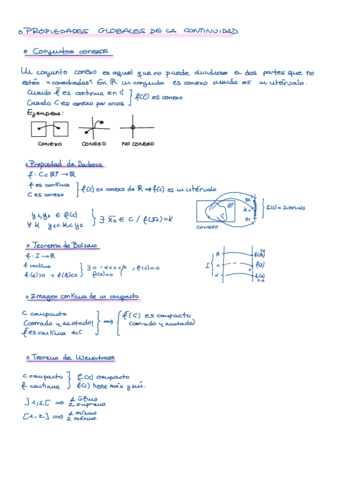 PROPIEDADES GLOBALES DE LA CONTINUIDAD
Conjuntos conexos
Un conjunto conexo es aquel que no puede dividirse en dos partes que no
estén "conectadas". En R un conjunto es conexo cuando es un intervalo.
Cuando f es continua en C
Cuando C es conexo por arcos } f(C) es conexo
Ejemplos:
CONEXO CONEXO NO CONEXO
Propiedad de Darboux
f: C⊂Rᵖ → R
f es continua
C es conexo } f(C) es conexo de R → f(C) es un intervalo
f(C) = Intervalo
CONEXO
y₁, y₂ ∈ f(C)
∀ K y₁<K<y₂ } ∃ x₀ ∈ C / f(x₀)=K
Teorema de Bolzano
f: I→R
f continua
Imagen continua de un compacto
C compacto
(cerrado y acotado)
f es continua en C } ⟹ { f(C) es compacto
(cerrado y acotado)
Teorema de Weierstrass
C compacto
f continua } f(C) compacto
f(C) tiene máx y mín.
]1,2[ ⟹ 1 ínfimo
2 supremo
[1,2] ⟹ 1 mínimo
2 máximo.